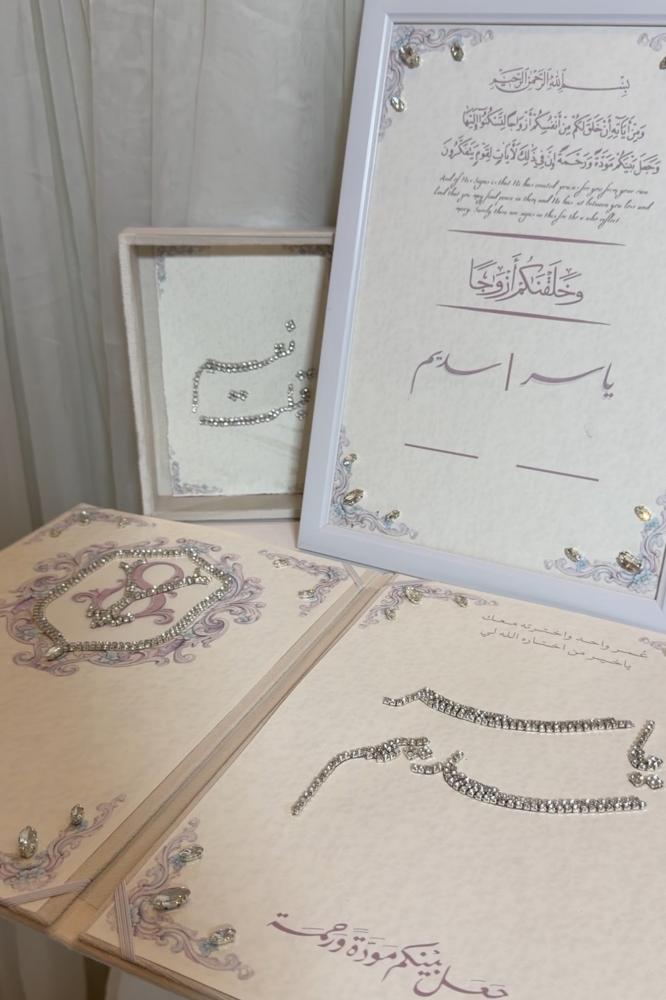 بسم الله الرحمن الرحيم
وَمِنْ آيَاتِهِ أَنْ خَلَقَ لَكُم مِّنْ أَنفُسِكُمْ أَزْوَاجًا لِّتَسْكُنُوا إِلَيْهَا
وَجَعَلَ بَيْنَكُم مَّوَدَّةً وَرَحْمَةً إِنَّ فِي ذَٰلِكَ لَآيَاتٍ لِّقَوْمٍ يَتَفَكَّرُونَ
And of His signs is that He has created for you from your own
kind that you may find peace in them and He has set between you love and
mercy. Surely there are signs in this for those who reflect
وَخَلَقْنَاكُمْ أَزْوَاجًا
ياسر | سديم
عُمر واحد واخترته معك
ياخير من اختاره الله لي
جعل بينكم مودةً ورحمة